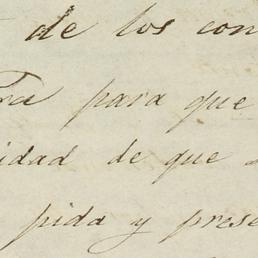 de los con
para que
idad de que
pida y prese